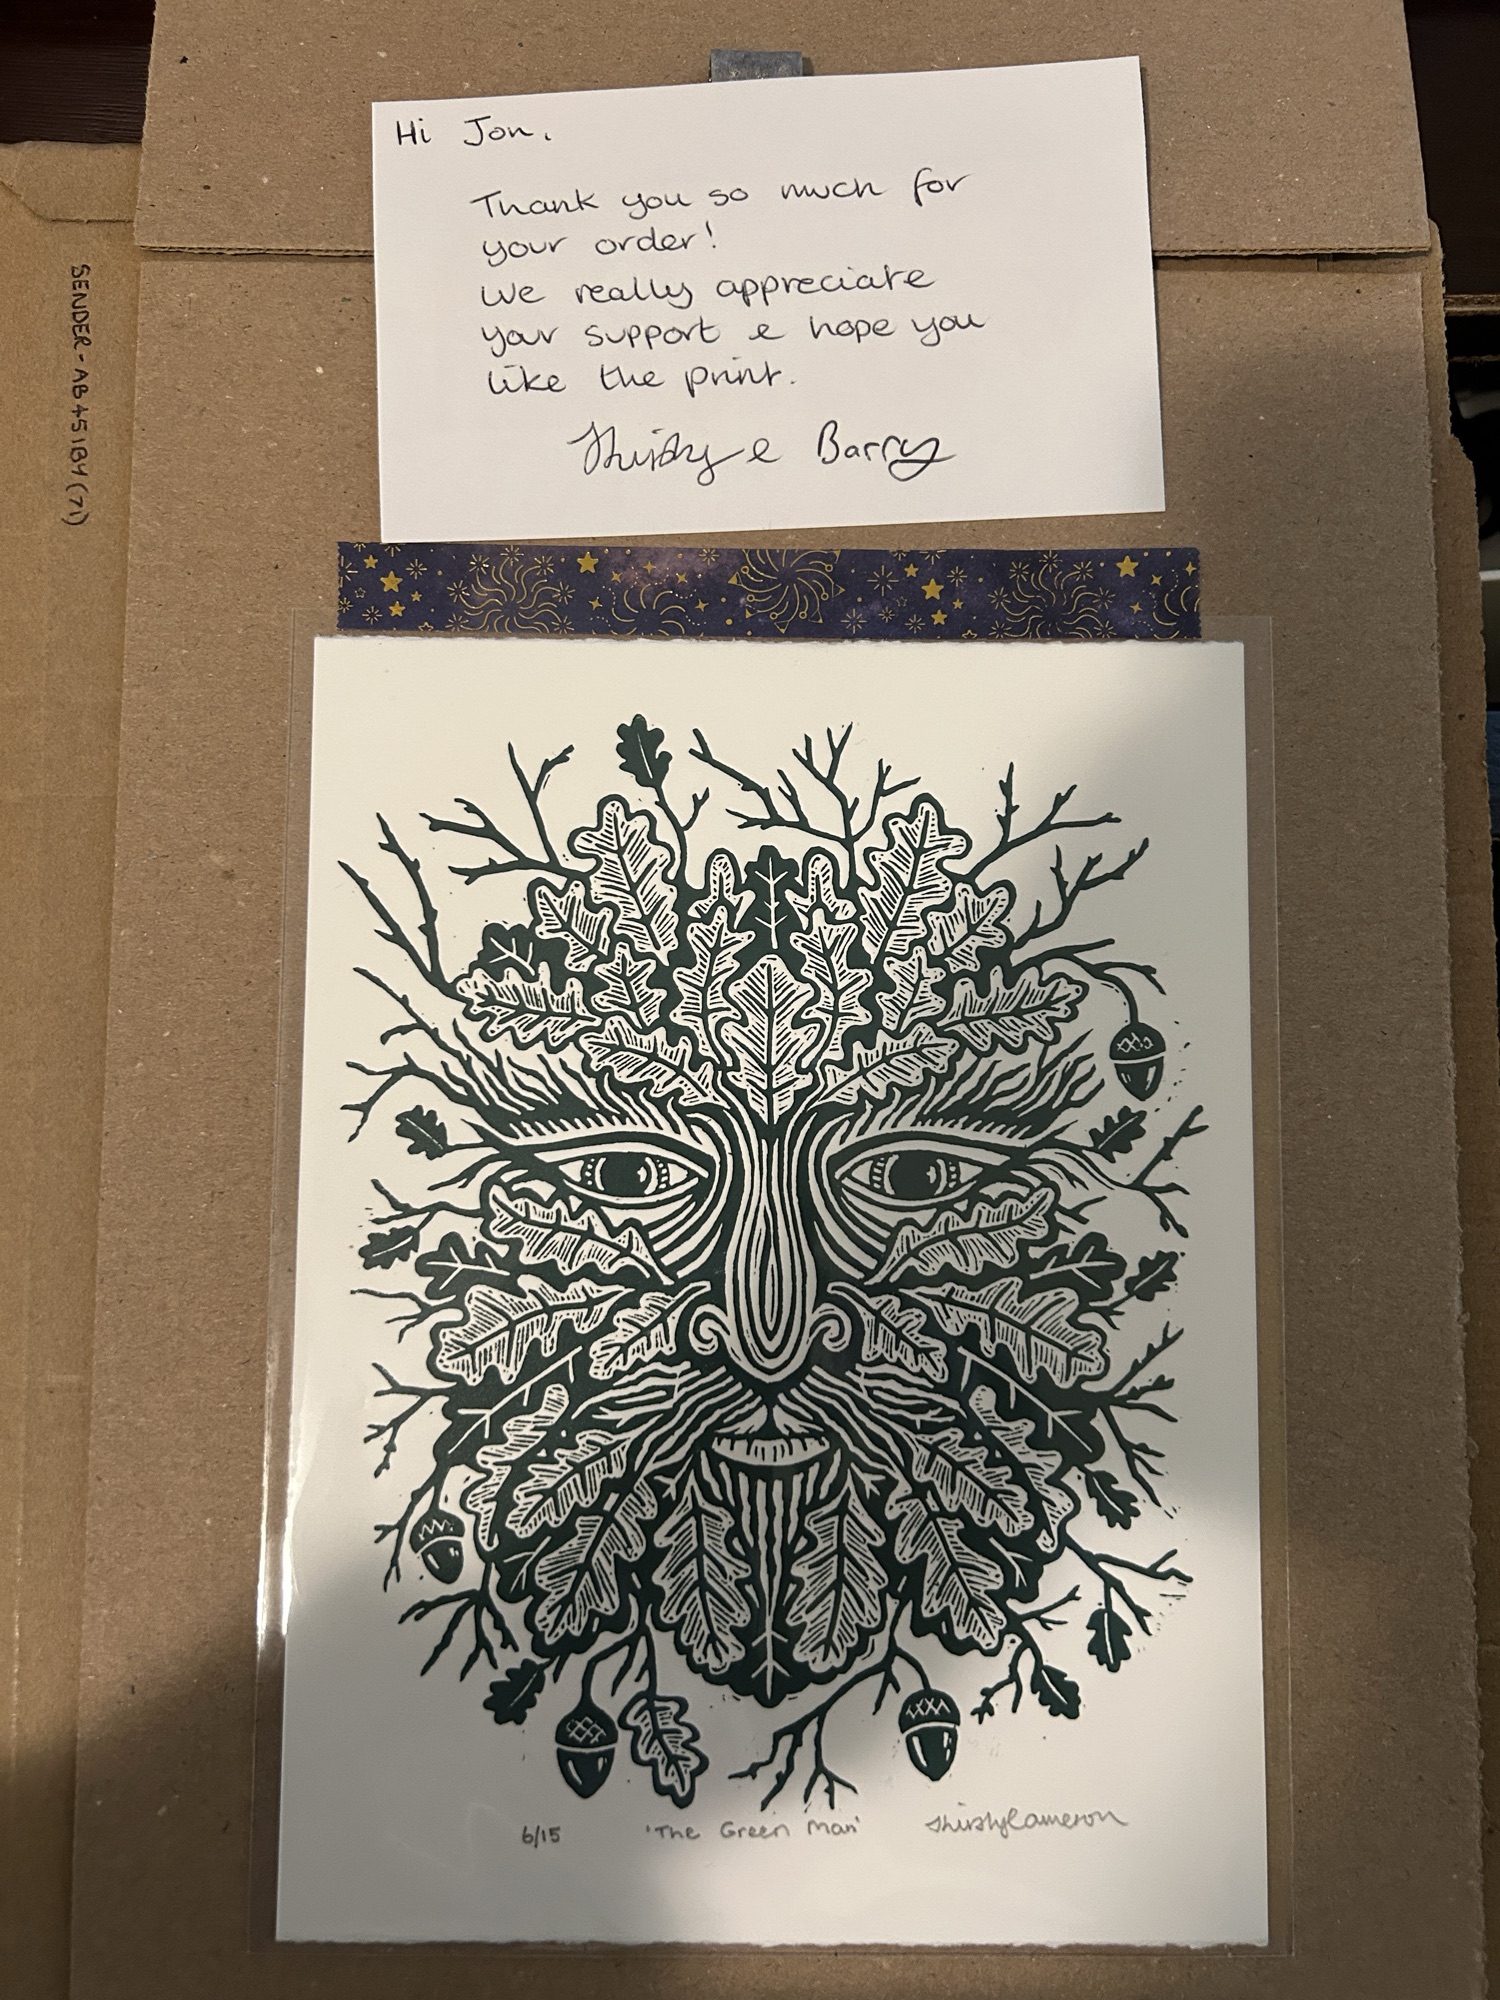 Hi Jon,
Thank you so much for
your order!
We really appreciate
your support & hope you
like the print.
Thirsty & Barry
SENDER - AB451BY (71)
6/15 'The Green Man' Cameron